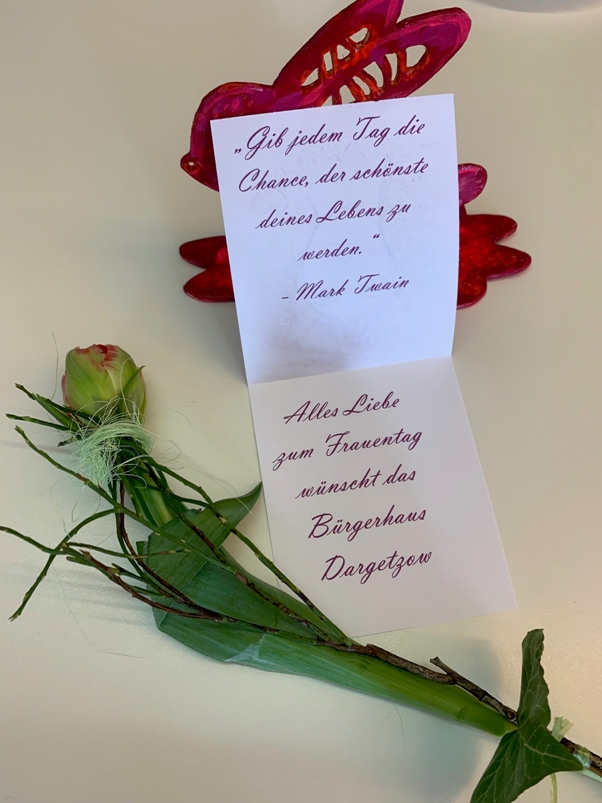 „Gib jedem Tag die
Chance, der schönste
deines Lebens zu
werden.“
- Mark Twain
Alles Liebe
zum Frauentag
wünscht das
Bürgerhaus
Dargetzow